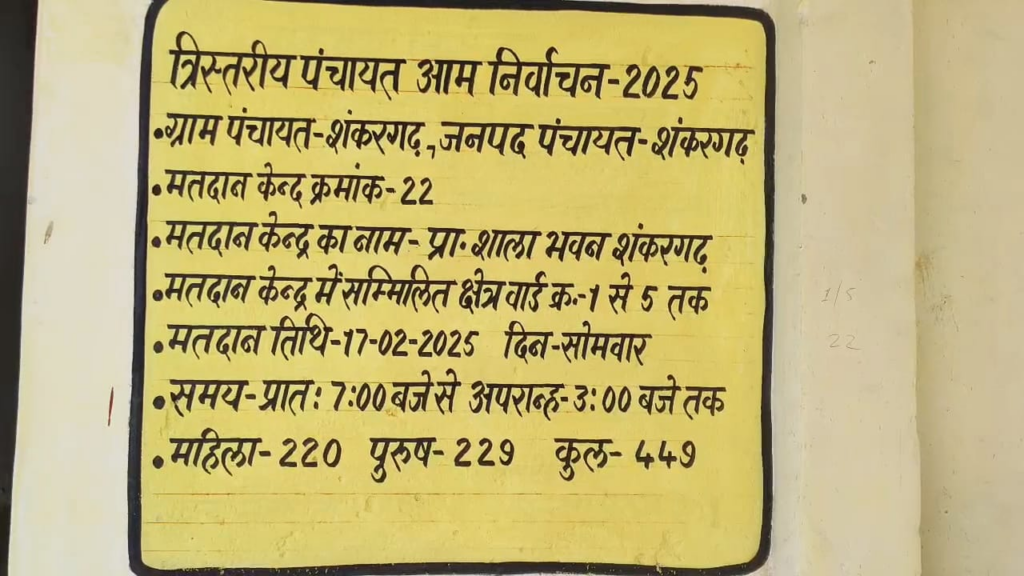 त्रिस्तरीय पंचायत आम निर्वाचन-2025
•ग्राम पंचायत-शंकरगढ़,जनपद पंचायत-शंकरगढ़
•मतदान केन्द्र क्रमांक-22
•मतदान केन्द्र का नाम- प्रा. शाला भवन शंकरगढ़
•मतदान केन्द्र में सम्मिलित क्षेत्र वार्ड क्र.-1 से 5 तक
•मतदान तिथि-17-02-2025 दिन-सोमवार
•समय-प्रात: 7:00 बजे से अपरान्ह-3:00 बजे तक
•महिला-220 पुरूष-229 कुल-449
1/5
22